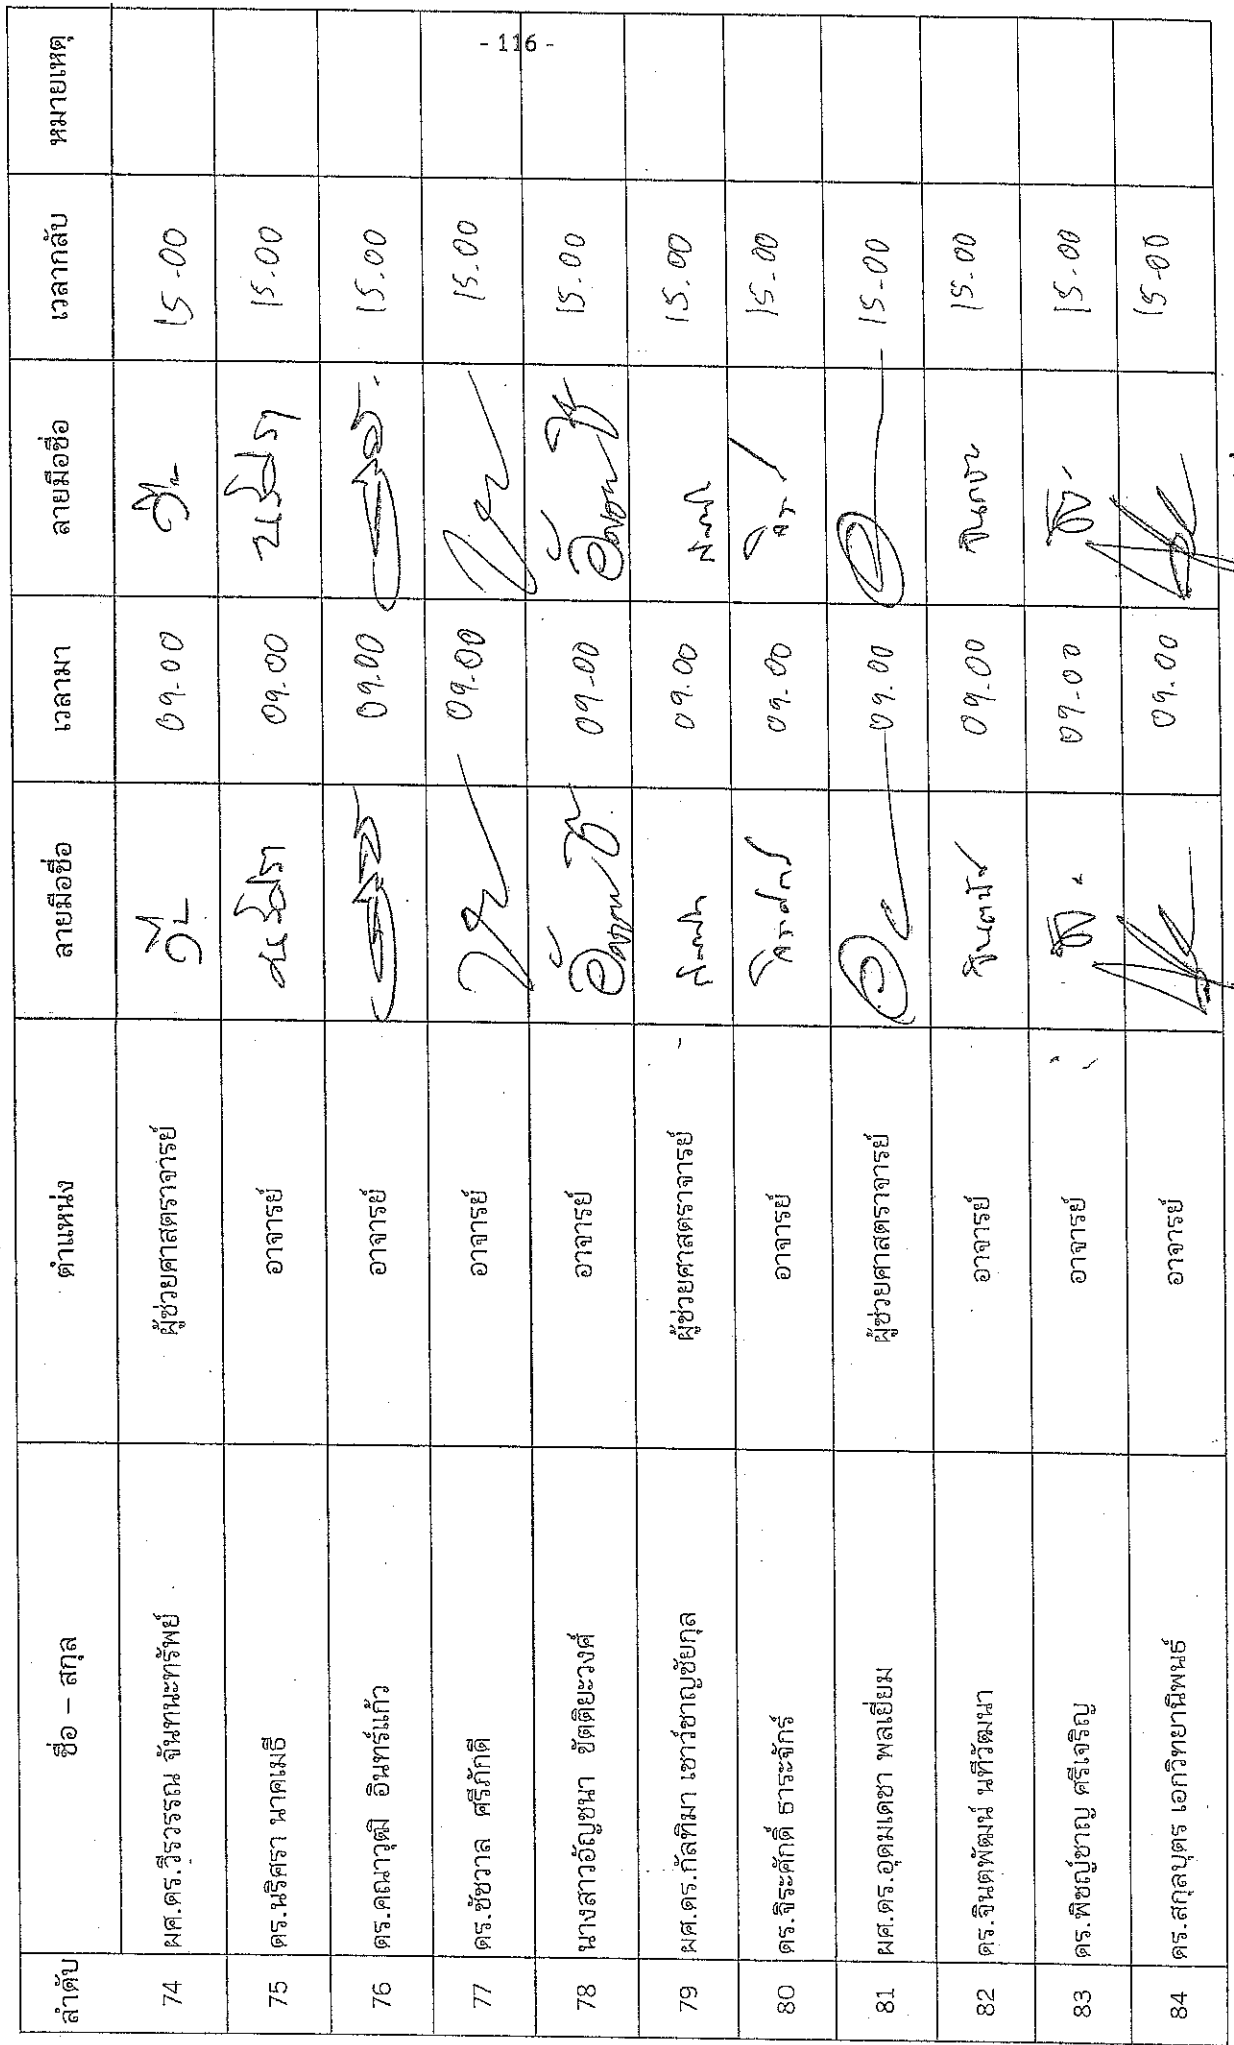 - 116 -
ลำดับ ชื่อ – สกุล ตำแหน่ง ลายมือชื่อ เวลามา ลายมือชื่อ เวลากลับ หมายเหตุ
74 ผศ.ดร.วีรวรรณ จันทนะทรัพย์ ผู้ช่วยศาสตราจารย์ 09.00 15.00
75 ดร.นริศรา นาคเมธี อาจารย์ 09.00 15.00
76 ดร.คณาวุฒิ อินทร์แก้ว อาจารย์ 09.00 15.00
77 ดร.ชัชวาล ศรีภักดี อาจารย์ 09.00 15.00
78 นางสาวอัญชนา ขัตติยะวงศ์ อาจารย์ 09.00 15.00
79 ผศ.ดร.กัลทิมา เชาว์ชาญชัยกุล ผู้ช่วยศาสตราจารย์ 09.00 15.00
80 ดร.จิระศักดิ์ ธาระจักร์ อาจารย์ 09.00 15.00
81 ผศ.ดร.อุดมเดชา พลเยี่ยม ผู้ช่วยศาสตราจารย์ 09.00 15.00
82 ดร.จินตพัฒน์ นทีวัฒนา อาจารย์ 09.00 15.00
83 ดร.พิชญ์ชาญ ศรีเจริญ อาจารย์ 09.00 15.00
84 ดร.สกุลบุตร เอกวิทยานิพนธ์ อาจารย์ 09.00 15.00